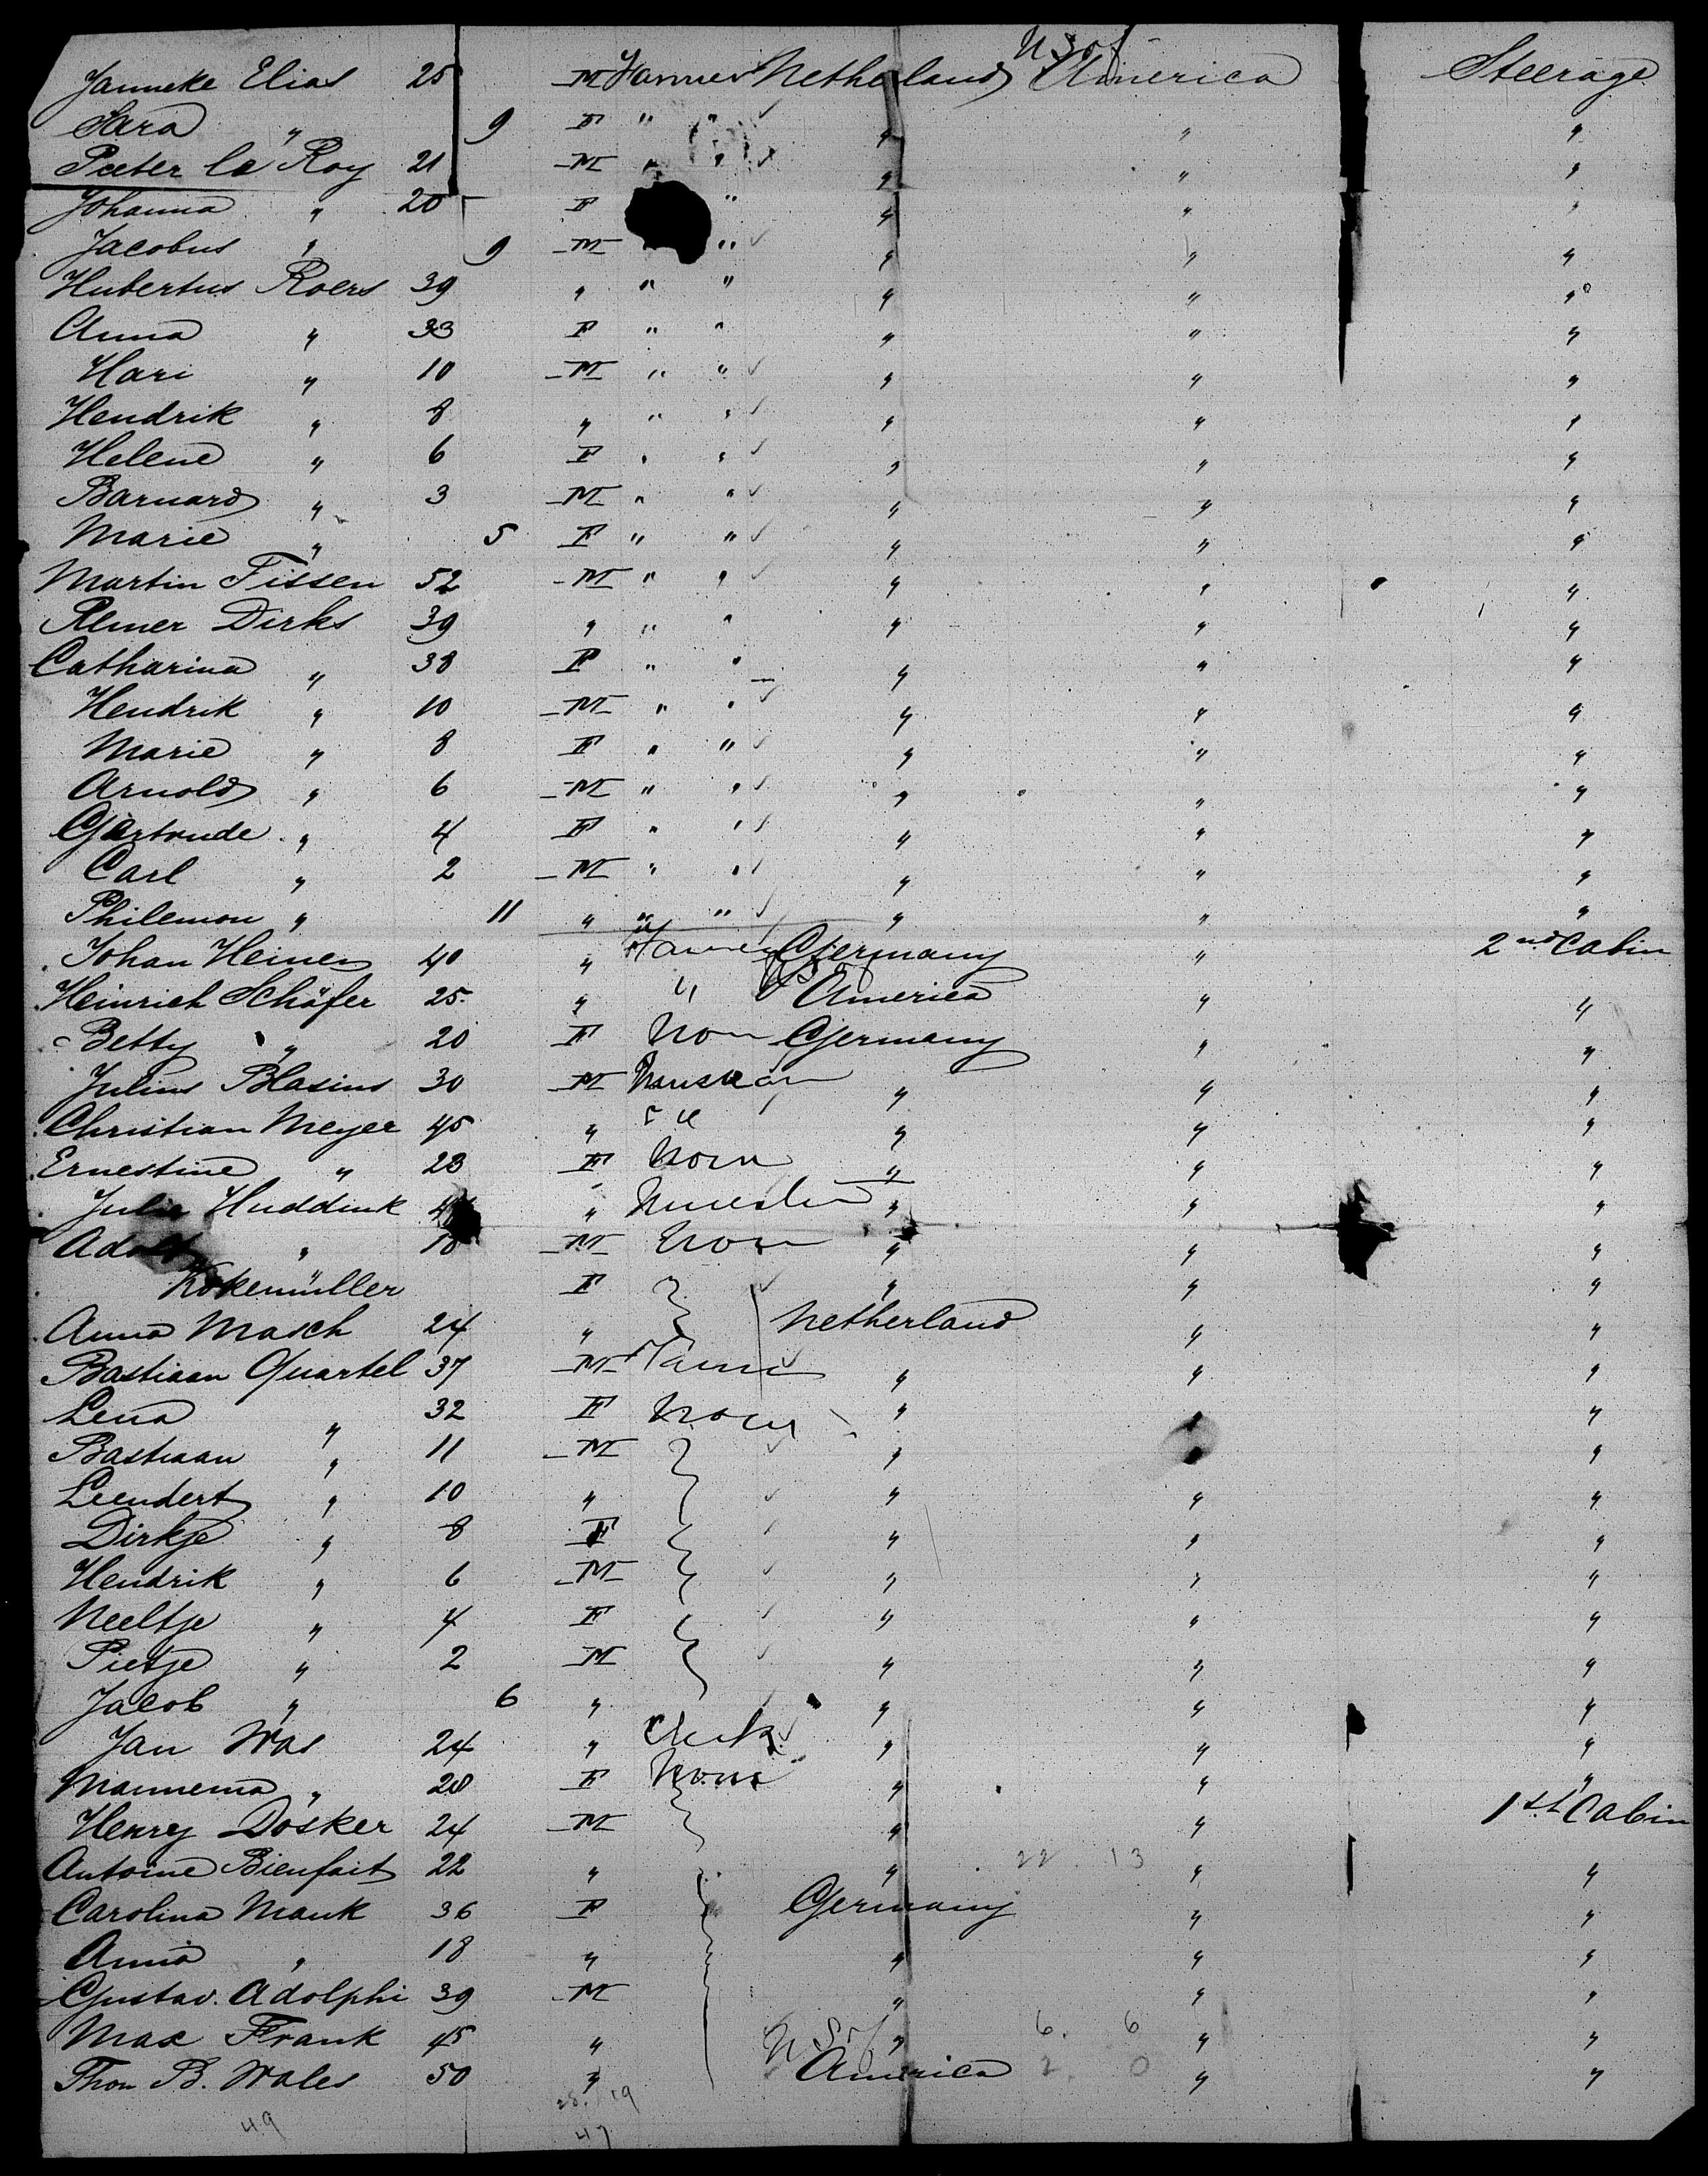 U S of
Janneke Elias 25 M Farmer Netherland America Steerage
Sara " 9 F " " " " "
Pieter le Roy 21 M " " " " "
Johanna " 20 F " " " "
Jacobus " 9 M " " " "
Hubertus Roers 39 " " " " " "
Anna " 33 F " " " " "
Hari " 10 M " " " " "
Hendrik " 8 " " " " " "
Helene " 6 F " " " " "
Barnard " 3 M " " " " "
Marie " 5 F " " " " "
Martin Tissen 52 M " " " " "
Remer Dirks 39 " " " " " "
Catharina " 38 F " " " " "
Hendrik " 10 M " " " " "
Marie " 8 F " " " " "
Arnold " 6 M " " " " "
Gertrude " 4 F " " " " "
Carl " 2 M " " " " "
Philemon " 11 " " " " " "
Johan Heinen 40 " Farmer Germany " 2nd Cabin
Heinrich Schäfer 25 " " U S of America " "
Betty " 20 F Non Germany " "
Julius Blasius 30 M " " "
Christian Meyer 45 " " " "
Ernestine " 23 F Non " " "
Huddink " " " "
" M Non " " "
Kokemüller F " " "
Anna Masch 24 " Netherland " "
Bastiaan Quartel 37 M Farmer " " "
Lena " 32 F Non " " "
Bastiaan " 11 M " " "
Leendert " 10 " " " "
Dirkje " 8 F " " "
Hendrik " 6 M " " "
Neeltje " 4 F " " "
Pietje " 2 M " " "
Jacob " 6 " " " "
Jan Was 24 " Clerk " " "
Mannema " 20 F Non " " "
Henry Dosker 24 M " " 1st Cabin
Antoine Bienfait 22 " " 22 13 " "
Carolina Mank 36 F Germany " "
Anna " 18 " " " "
Gustav. Adolphi 39 M " " "
Max Frank 45 " " 6. 6 " "
U S of
Thos B. Wales 50 " America 2. 0 " "
28. 19
49 47